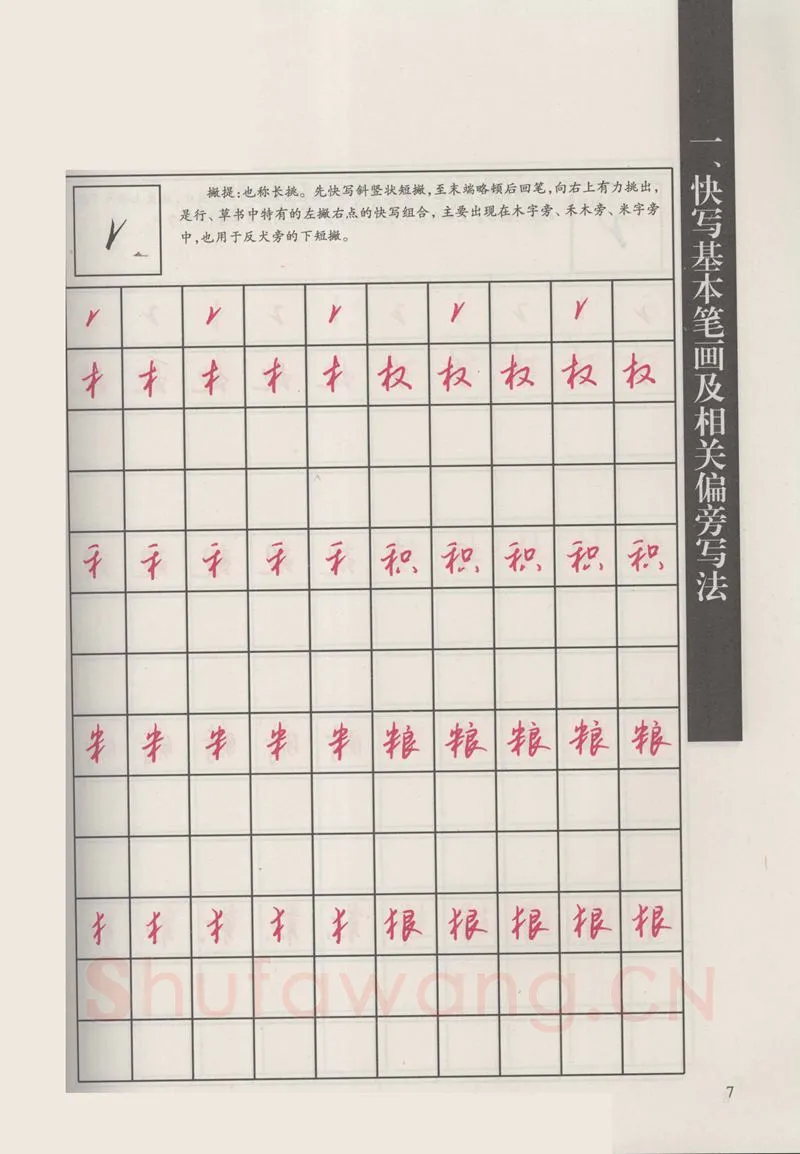 一、快写基本笔画及相关偏旁写法
撇提：也称长挑。先快写斜竖状短撇，至末端略顿后回笔，向右上有力挑出，
是行、草书中特有的左撇右点的快写组合，主要出现在木字旁、禾木旁、米字旁
中，也用于反犬旁的下短撇。
木 木 木 木 木 权 权 权 权 权
禾 禾 禾 禾 禾 积 积 积 积 积
米 米 米 米 米 粮 粮 粮 粮 粮
木 木 木 木 木 根 根 根 根 根
Shufawang.CN
7